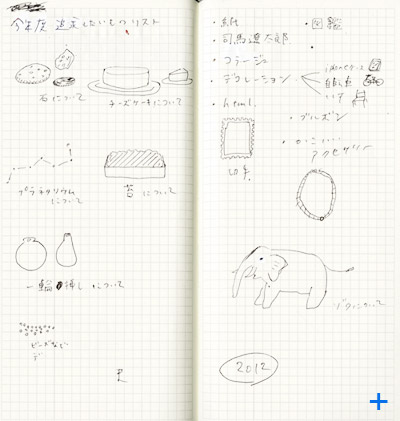 今年度 追求したいものリスト
石について
チーズケーキについて
プラネタリウム
について
苔について
一輪挿しについて
ビーズなど
・紙
・司馬遼太郎
・コラージュ
・デクレーション
・html.
切手
・図鑑
自転車
イス
・ブルゾン
・かっこいい
アクセサリー
について
2012